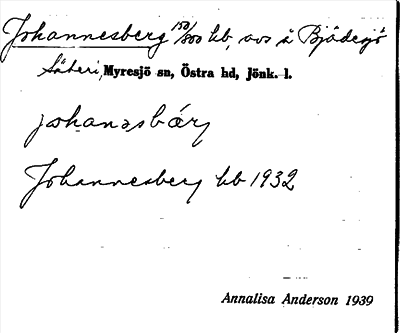 Johannesberg 150/800 hb, avs å Bjädesjö
Säteri, Myresjö sn, Östra hd, Jönk. l.
johanəsbærj
Johannesberg hb 1932
Annalisa Anderson 1939